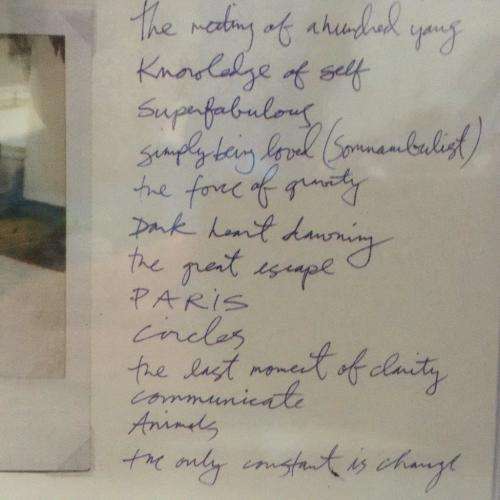 the meeting of a hundred yang
Knowledge of self
Superfabulous
simply being loved (Somnambulist)
the force of gravity
Dark heart dawning
the great escape
PARIS
circles
the last moment of clarity
communicate
Animals
the only constant is change